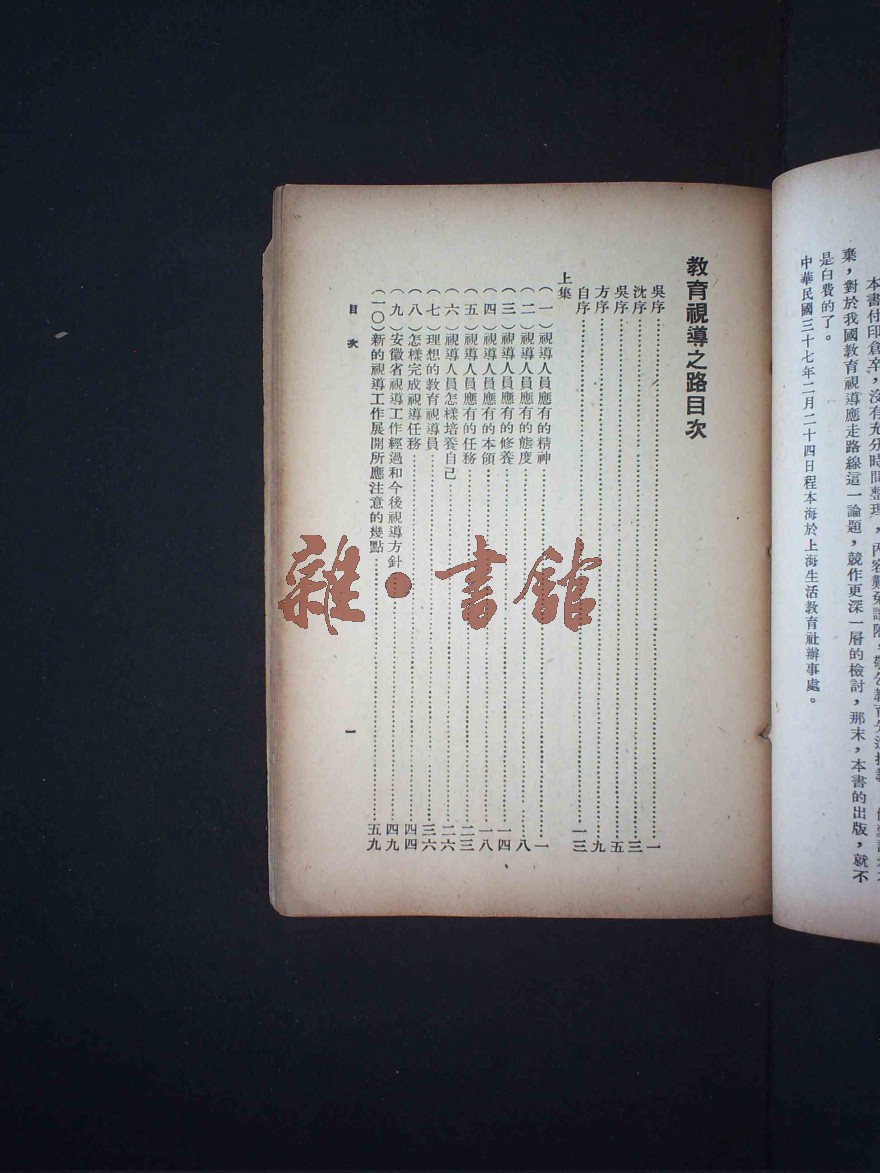 本書付印倉卒，沒有充分時間整理，內容難免
棄，對於我國教育視導應走路線這一論題，競作更深一層的檢討，那末，本書的出版，就不
是白費的了。
中華民國三十七年二月二十四日程本海於上海生活教育社辦事處。
教育視導之路目次
吳序……一
沈序……三
吳序……五
方序……九
自序……一三
上集
（一）視導人員應有的精神……一
（二）視導人員應有的態度……八
（三）視導人員應有的修養……一四
（四）視導人員應有的本領……一八
（五）視導人員應有的任務……二三
（六）視導人員怎樣培養自己……二六
（七）理想的教育視導員……三六
（八）怎樣完成視導任務……四四
（九）安徽省視導工作經過和今後視導方針……四九
（一〇）新的視導工作展開所應注意的幾點……五九
目次
一
雜・書館